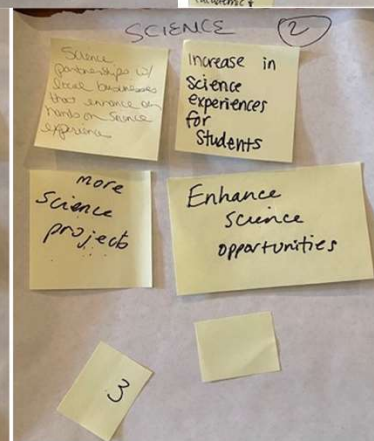 SCIENCE 2
Science
partnerships w/
local businesses
that enhance an
hands on science
experience
Increase in
Science
experiences
for
Students
more
Science
projects
Enhance
science
opportunities
3